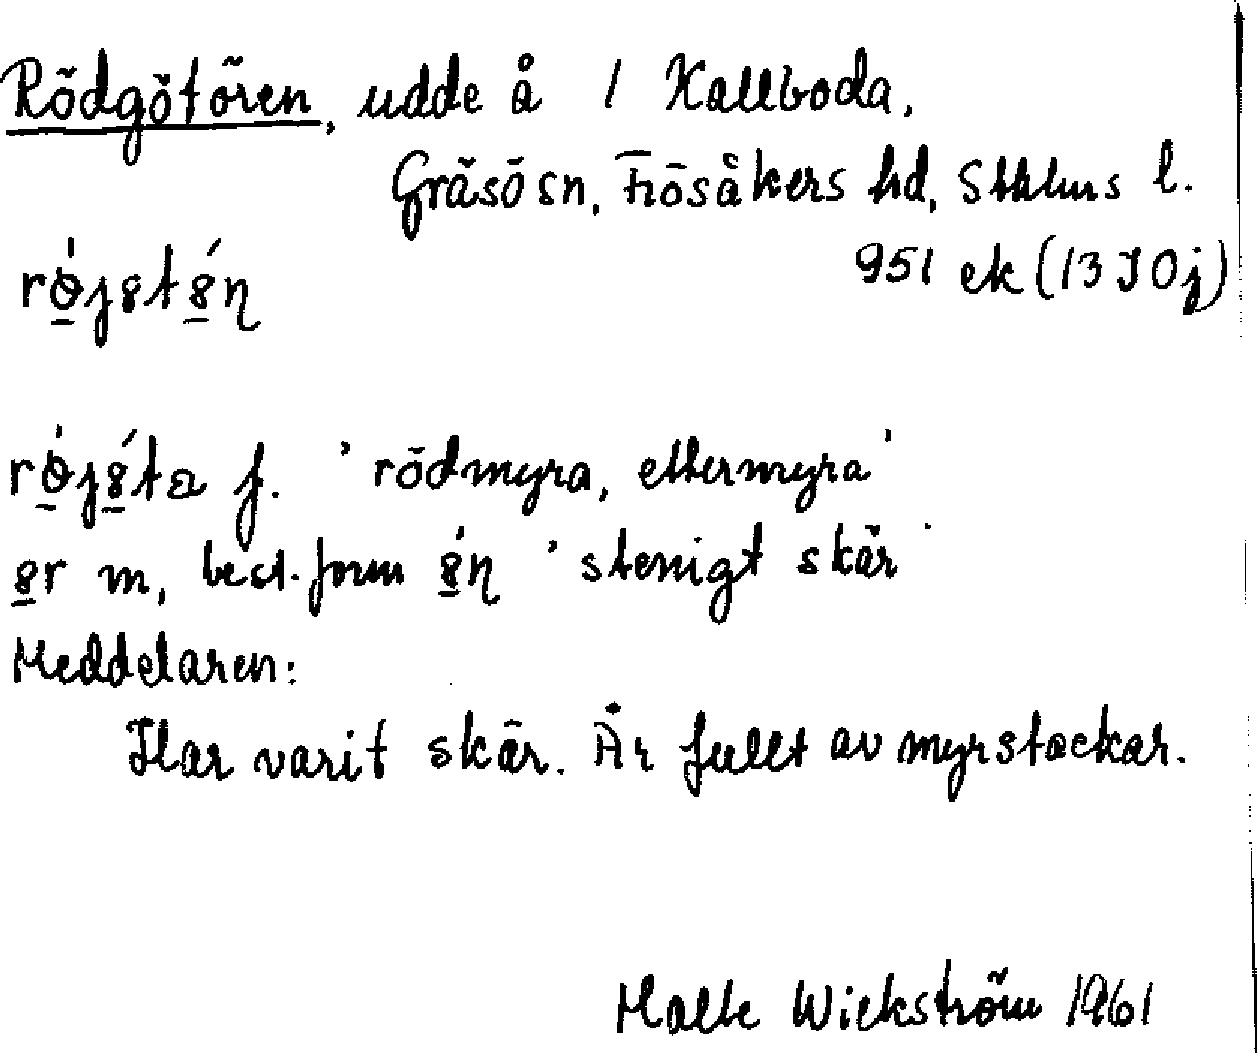 Rödgötören, udde å 1 Kallboda,
Gräsö sn, Frösåkers hd, Sthlms l.
951 ek (13 I 0j)
rö́jstö́n
f. 'rödmyra, ettermyra'
m, best. form 'stenigt skär'
Meddelaren:
Har varit skär. Är fullt av myrstackar.
Malte Wickström 1961